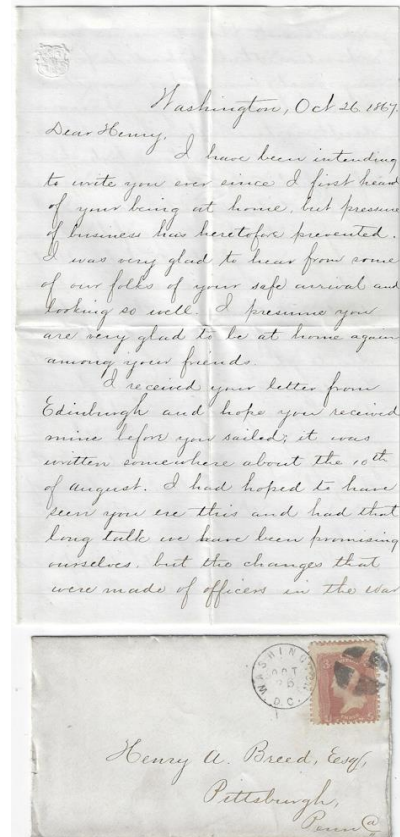 Washington, Oct 26. 1867.
Dear Henry,
I have been intending
to write you ever since I first heard
of your being at home, but pressure
of business has heretofore prevented.
I was very glad to hear from some
of our folks of your safe arrival and
looking so well. I presume you
are very glad to be at home again
among your friends.
I received your letter from
Edinburgh and hope you received
mine before you sailed; it was
written somewhere about the 10th
of August. I had hoped to have
seen you ere this and had that
long talk we have been promising
ourselves, but the changes that
were made of officers in the war
WASHINGTON
OCT
D.C.
3
Henry A. Breed, Esq,
Pittsburgh,
Penna